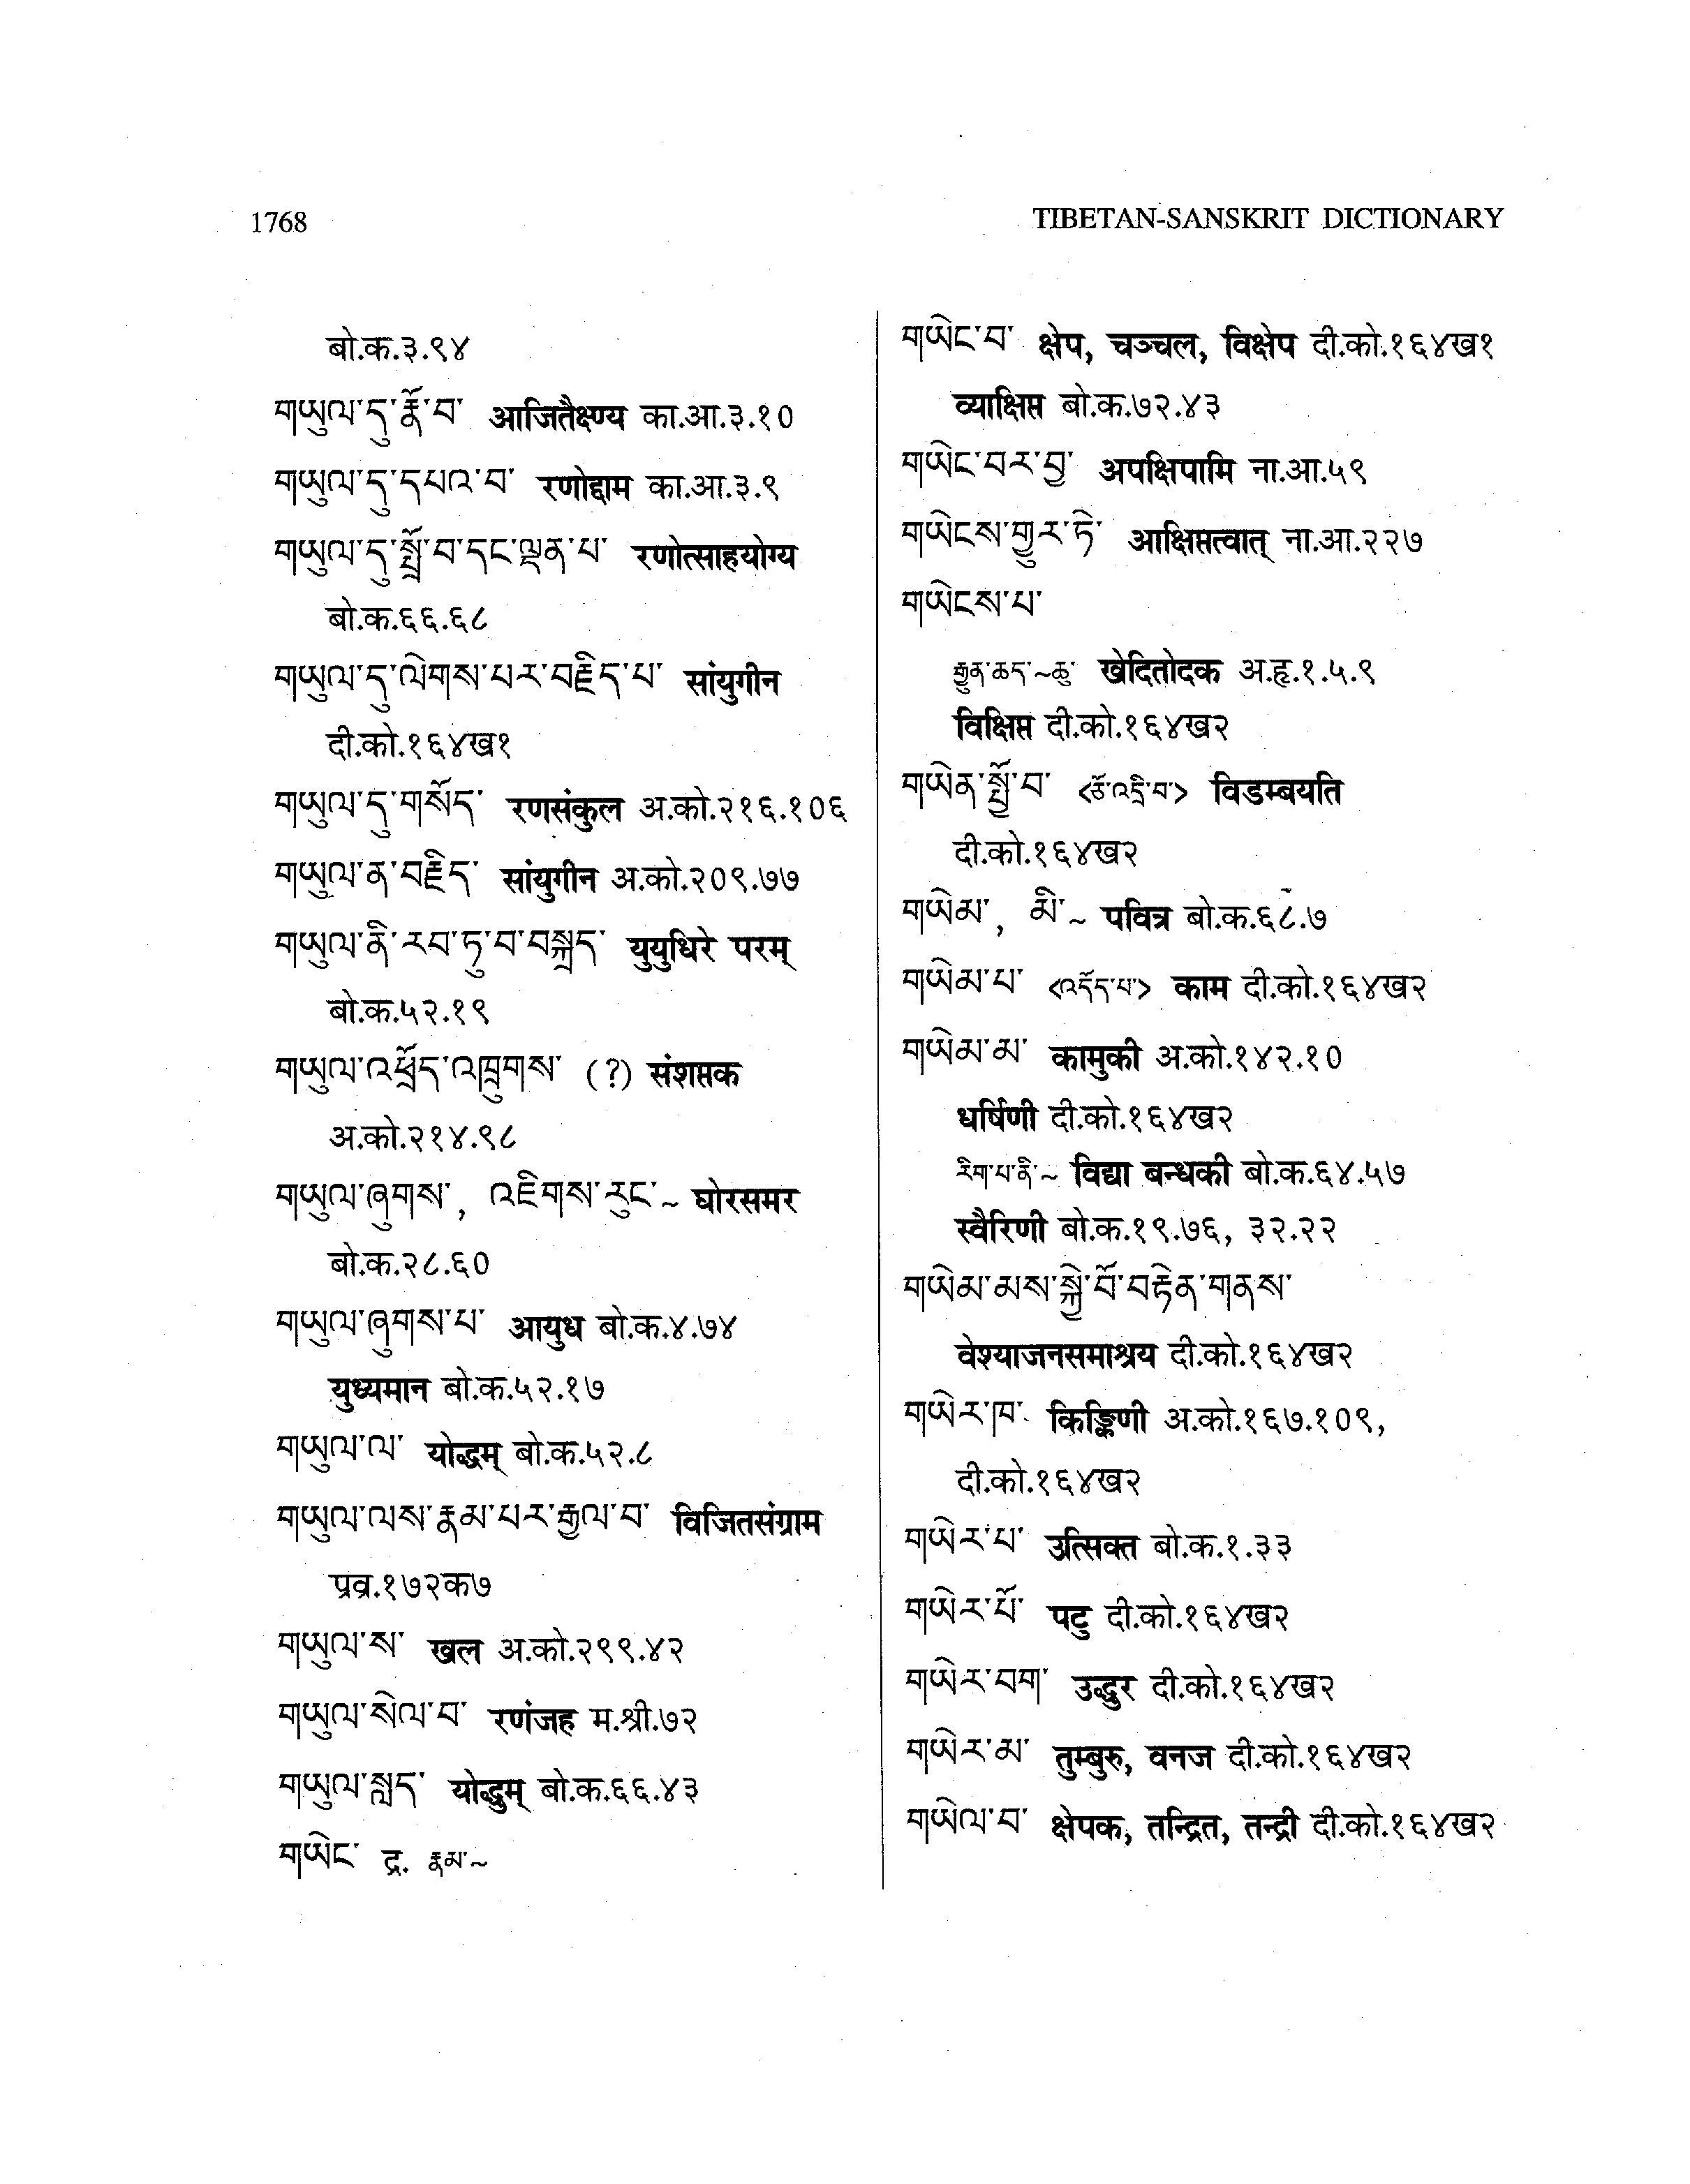 1768
TIBETAN-SANSKRIT DICTIONARY
बो.क.३.९४
གཡུལ་དུ་རྣོ་བ་ आजितैक्ष्ण्य का.आ.३.१०
གཡུལ་དུ་དཔའ་བ་ रणोद्दाम का.आ.३.९
གཡུལ་དུ་སྤྲོ་བ་དང་ལྡན་པ་ रणोत्साहयोग्य
बो.क.६६.६८
གཡུལ་དུ་ལེགས་པར་བརྗིད་པ་ सांयुगीन
दी.को.१६४ख१
གཡུལ་དུ་གསོད་ रणसंकुल अ.को.२१६.१०६
གཡུལ་ན་བརྗིད་ सांयुगीन अ.को.२०९.७७
གཡུལ་ནི་རབ་ཏུ་བ་བསྐྲད་ युयुधिरे परम्
बो.क.५२.१९
གཡུལ་འཕྲོད་འཁྲུགས་ (?) संशप्तक
अ.को.२१४.९८
གཡུལ་ཞུགས་, འཇིགས་རུང་~ घोरसमर
बो.क.२८.६०
གཡུལ་ཞུགས་པ་ आयुध बो.क.४.७४
युध्यमान बो.क.५२.१७
གཡུལ་ལ་ योद्धम् बो.क.५२.८
གཡུལ་ལས་རྣམ་པར་རྒྱལ་བ་ विजितसंग्राम
प्रव्र.१७२क७
གཡུལ་ས་ खल अ.को.२९९.४२
གཡུལ་སེལ་བ་ रणंजह म.श्री.७२
གཡུལ་སླད་ योद्धुम् बो.क.६६.४३
གཡེང་ द्र. རྣམ་~
གཡེང་བ་ क्षेप, चञ्चल, विक्षेप दी.को.१६४ख१
व्याक्षिप्त बो.क.७२.४३
གཡེང་བར་བྱ་ अपक्षिपामि ना.आ.५९
གཡེངས་གྱུར་ཏེ་ आक्षिप्तत्वात् ना.आ.२२७
གཡེངས་པ་
རྒྱུན་ཆད་~ཆུ་ खेदितोदक अ.हृ.१.५.९
विक्षिप्त दी.को.१६४ख२
གཡེན་སྤྱོ་བ་ <ཙོ་འདྲི་བ་> विडम्बयति
दी.को.१६४ख२
གཡེམ་, མི་~ पवित्र बो.क.६८.७
གཡེམ་པ་ <འདོད་པ་> काम दी.को.१६४ख२
གཡེམ་མ་ कामुकी अ.को.१४२.१०
धर्षिणी दी.को.१६४ख२
རིག་པ་ནི་~ विद्या बन्धकी बो.क.६४.५७
स्वैरिणी बो.क.१९.७६, ३२.२२
གཡེམ་མས་སྐྱེ་བོ་བརྟེན་གནས་
वेश्याजनसमाश्रय दी.को.१६४ख२
གཡེར་ཁ་ किङ्किणी अ.को.१६७.१०९,
दी.को.१६४ख२
གཡེར་པ་ उत्सिक्त बो.क.१.३३
གཡེར་པོ་ पटु दी.को.१६४ख२
གཡེར་བག་ उद्धुर दी.को.१६४ख२
གཡེར་མ་ तुम्बुरु, वनज दी.को.१६४ख२
གཡེལ་བ་ क्षेपक, तन्द्रित, तन्द्री दी.को.१६४ख२